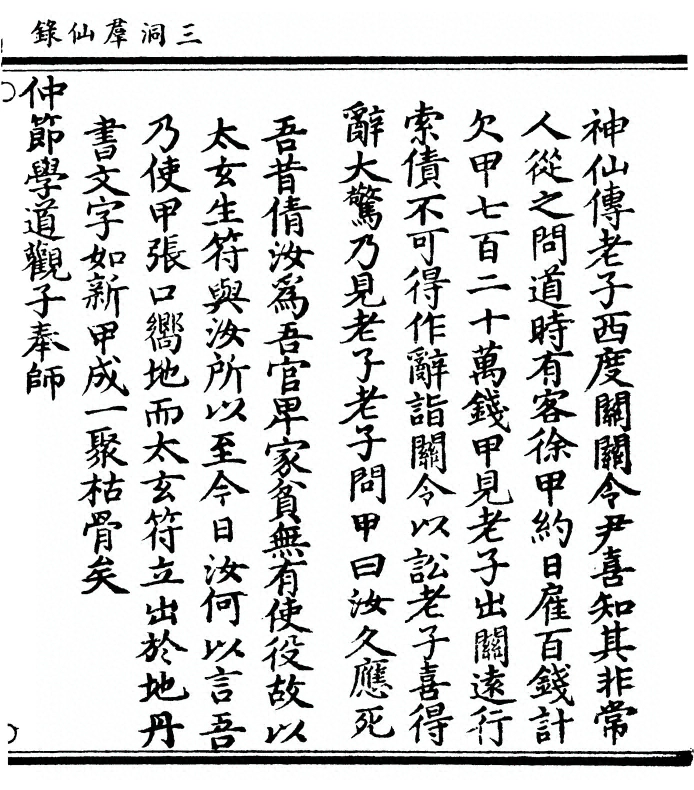 三洞羣仙錄
神仙傳老子西度關關令尹喜知其非常
人從之問道時有客徐甲約日雇百錢計
欠甲七百二十萬錢甲見老子出關遠行
索債不可得作辭詣關令以訟老子喜得
辭大驚乃見老子老子問甲曰汝久應死
吾昔倩汝爲吾官卑家貧無有使役故以
太玄生符與汝所以至今日汝何以言吾
乃使甲張口嚮地而太玄符立出於地丹
書文字如新甲成一聚枯骨矣
仲節學道觀子奉師